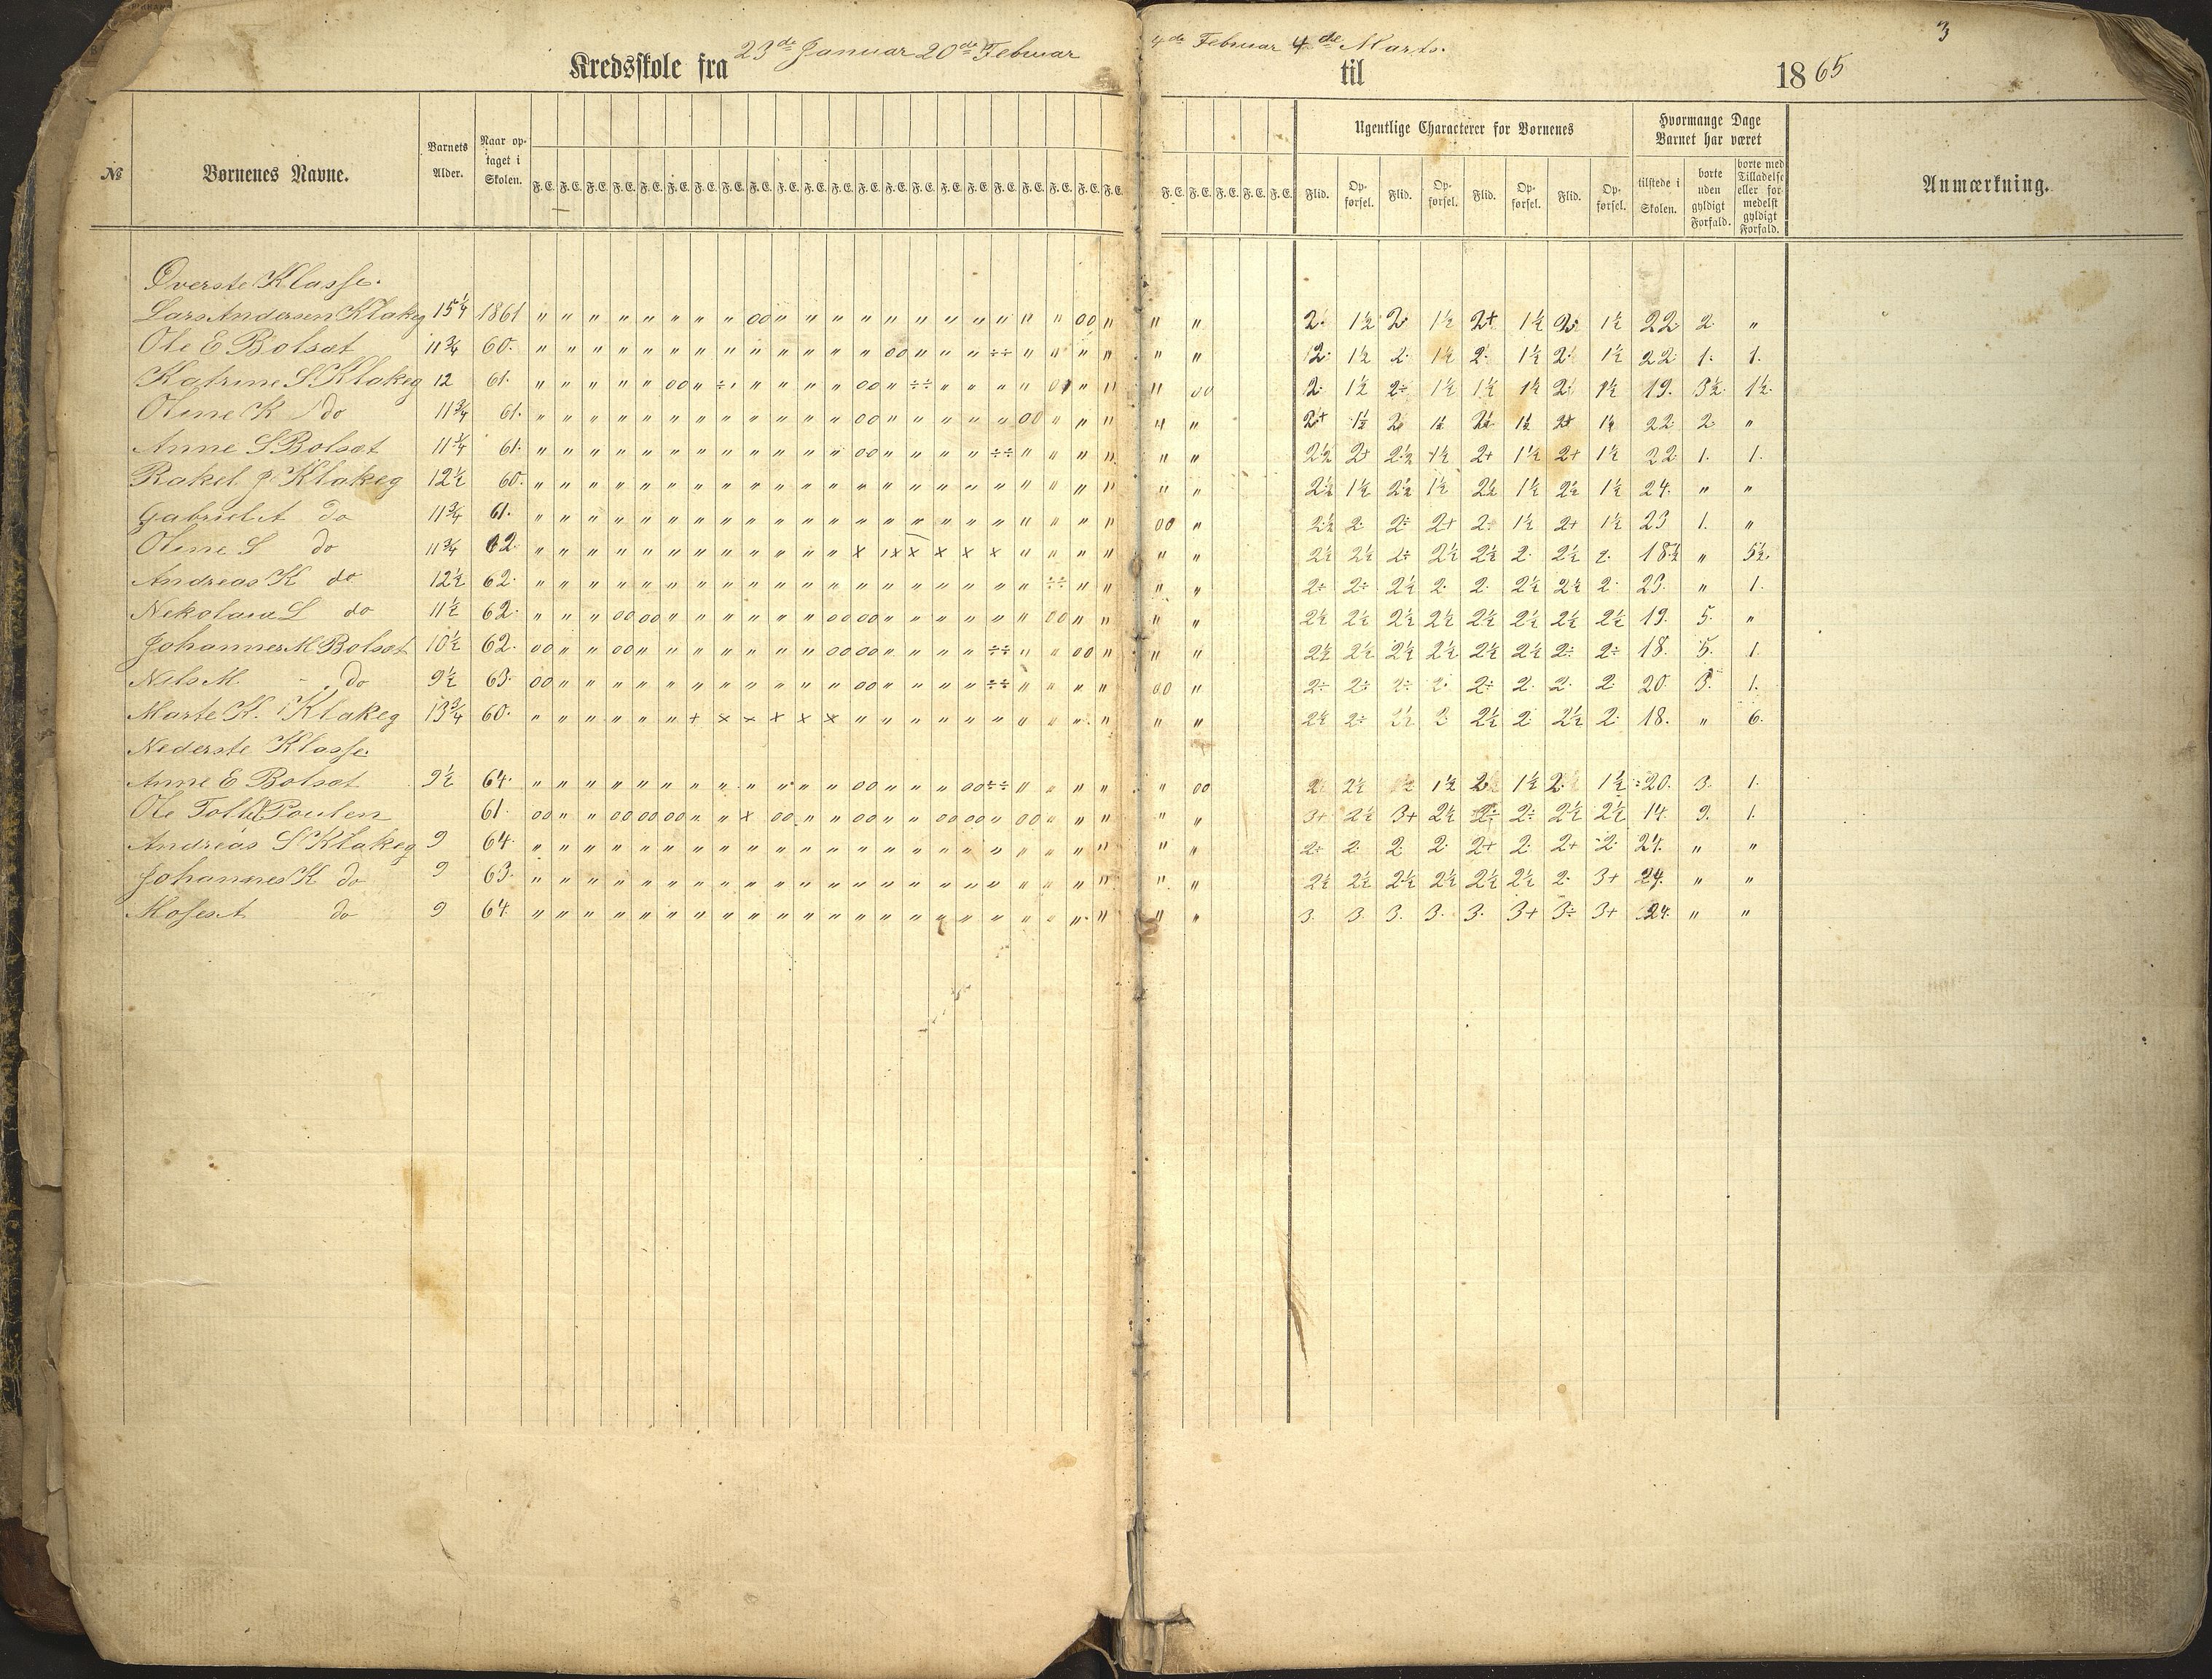 3
Kredsskole fra 23de Januar 20de Februar 4de Februar til 4de Marts. 1865
№ Børnenes Navne. Barnets Alder. Naar optaget i Skolen. F. E. F. E. F. E. F. E. F. E. F. E. F. E. F. E. F. E. F. E. F. E. F. E. F. E. F. E. F. E. F. E. F. E. F. E. F. E. F. E. F. E. F. E. F. E. F. E. F. E. F. E. Ugentlige Characterer for Børnenes Flid. Opførsel. Flid. Opførsel. Flid. Opførsel. Flid. Opførsel. Hvormange Dage Barnet har været tilstede i Skolen. borte uden gyldigt Forfald. borte med Tilladelse eller formedelst gyldigt Forfald. Anmærkning.
Øverste Klasse.
Lars Andersen Klakeg 15¼ 1861 " " " " " " " " oo " " " " " " " " " " " oo " " " 2. 1½ 2. 1½ 2+ 1½ 2. 1½ 22 2. "
Ole E Bolsæt 11¾ 60. " " " " " " " " " " " " " oo " " " ÷÷ " " " " " " 2. 1½ 2. 1½ 2. 1½ 2. 1½ 22. 1. 1.
Katrine S Klakeg 12 61. " " " " " oo " ÷ı " " " " oo " ÷÷ " " " " " " " oo 2. 1½ 2÷ 1½ 1½ 1½ 2. 1½ 19. 3½. 1½.
Oline K do 11¾ 61. " " " " " " " " " " " " oo " " " " " oo " " " " " 2+ 1½ 2. 1½ 1½ 2+ 1½ 22 2. "
Anne S Bolsæt 11¾ 61. " " " " " " " " " " " " oo " " " " ÷÷ " " " " " " 2½ 2+ 2½ 1½ 2+ 1½ 2+ 1½ 22. 1. 1.
Rakel J. Klakeg 12½ 60. " " " " " " " " " " " " " " " " " " " " " " " " 2½ 1½ 2½ 1½ 2½ 1½ 2½ 1½ 24. " "
Gabriel A do 11¾ 61. " " " " " " " " " " " " " " " " " " " " " " oo " 2½ 2. 2÷ 2+ 2÷ 1½ 2+ 1½ 23 1. "
Oline S do 11¾ 62. " " " " " " " " " " " " x ıx x x x x " " " " " " 2½ 2½ 2÷ 2½ 2½ 2. 2½ 2. 18½ " 5½.
Andreas K do 12½ 62. " " " " " " " " " " " " " " " " " " " ÷÷ " " " " 2÷ 2÷ 2½ 2. 2. 2½ 2½ 2. 23. " 1.
Nekolaia L do 11½ 62. " " " oo oo " " " " " " oo oo " " " " " " oo " " " " 2½ 2½ 2½ 2½ 2½ 2½ 2½ 2½ 19. 5. "
Johannes M Bolsæt 10½ 62. oo " " oo " " " " " " " oo oo " " " " ÷÷ " " oo " " " 2½ 2½ 2½ 2½ 2½ 2½ 2÷ 2÷ 18. 5. 1.
Nils M. do 9½ 63. oo " " " " " " " " " " " oo " " " " ÷÷ " " " " oo " 2÷ 2÷ 2÷ 2. 2÷ 2. 2. 2. 20. 3. 1.
Marte K. Klakeg 13¾ 60. " " " " " " + x x x x x " " " " " " " " " " " " 2½ 2÷ 2½ 2 2½ 2. 2½ 2. 18. " 6.
Nederste Klasse.
Anne E Bolsæt 9½ 64. " " " " " " " " " " " " oo " " " oo ÷÷ " " " " " oo 2. 2½ 1½ 2 1½ 2. 1½ 20. 3. 1.
Ole Poulen 61. oo " " oo oo oo " " x oo " " oo " " oo oo " oo " " " " " 3+ 2½ 3+ 2½ 2÷ 2÷ 2½ 2½ 14. 9. 1.
Andreas S Klakeg 9 64. " " " " " " " " " " " " " " " " " " " " " " " " 2÷ 2. 2. 2. 2+ 2. 2+ 2. 24. " "
Johannes K do 9 63. " " " " " " " " " " " " " " " " " " " " " " " " 2½ 2½ 2½ 2½ 2½ 2½ 2. 3+ 24. " "
Moses A do 9 64. " " " " " " " " " " " " " " " " " " " " " " " " 3. 3. 3. 3. 3. 3+ 3÷ 3+ 24. " "